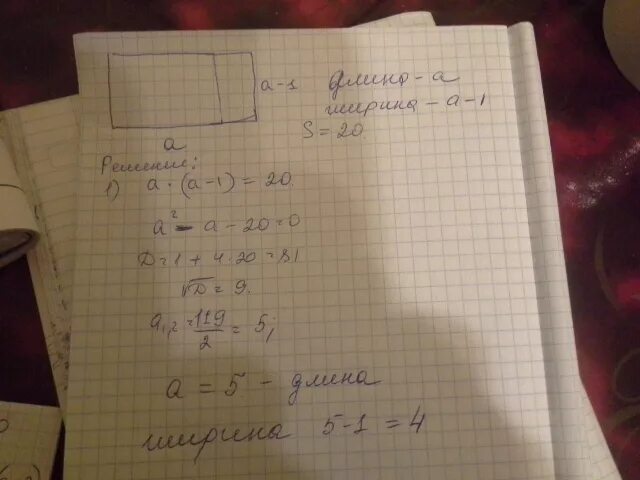 a-1
длина - a
ширина - a-1
S = 20
a
Решение:
1) a · (a-1) = 20
a² - a - 20 = 0
D = 1 + 4·20 = 81
√D = 9
a₁,₂ = 1±9/2 = 5;
a = 5 - длина
ширина 5-1 = 4